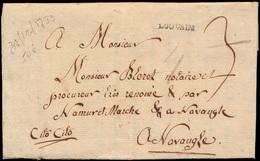 LOUVAIN
A Monsieur
Monsieur Bloret notaire et
procureur très renomé & par
Namur et Marche & a Navaugle
Cito Cito
A Navaugle.